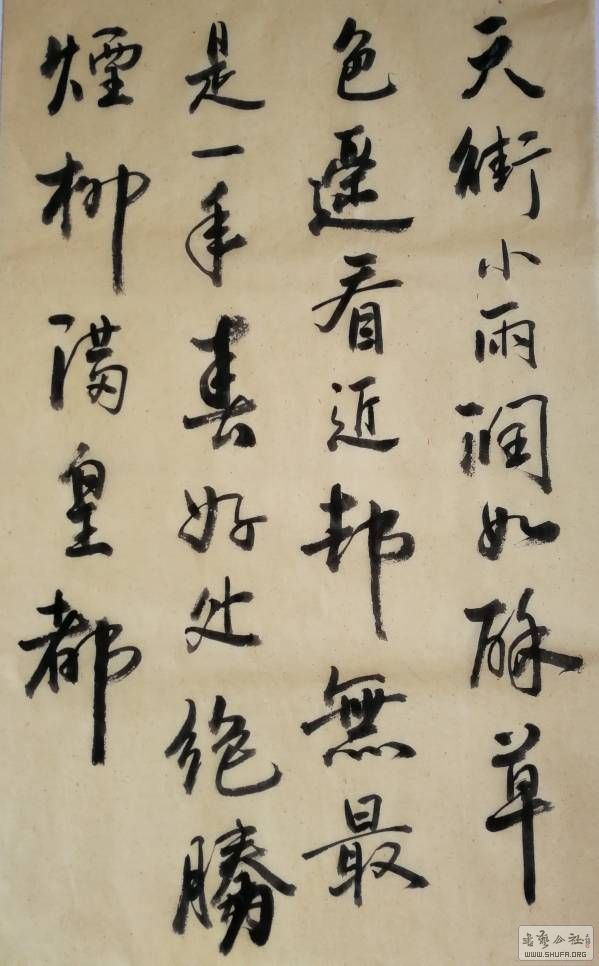 天街小雨润如酥草
色遥看近却無最
是一年春好处绝勝
煙柳满皇都
书艺公社
WWW.SHUFA.ORG